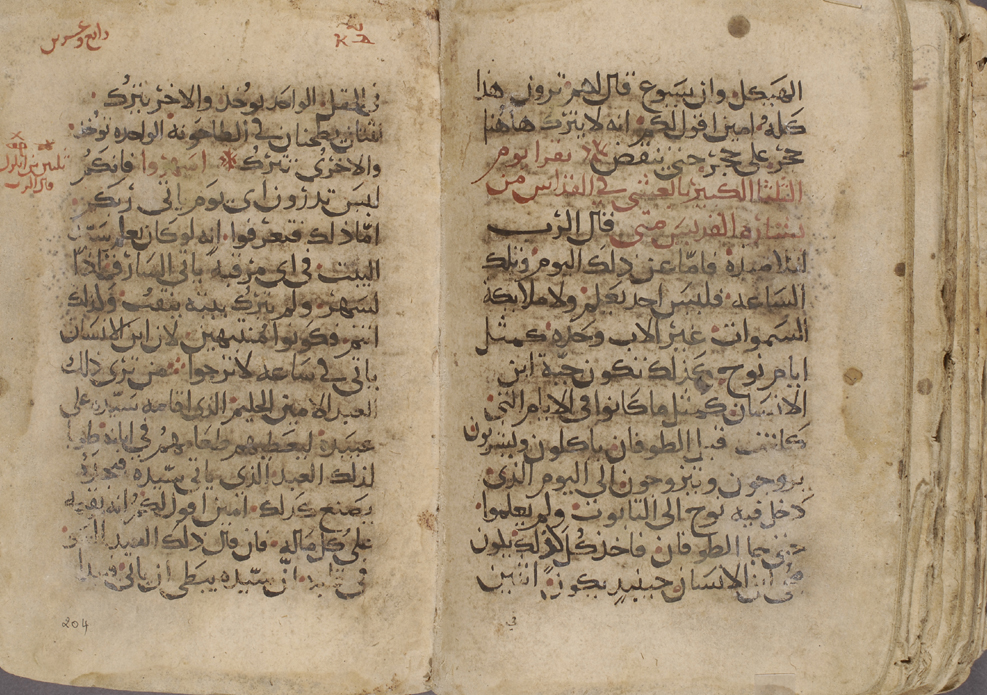 الهيكل وان يسوع قال لهم ترون هذا
كله امين اقول لكم انه لا يترك هاهنا
حجر على حجر حتى ينقض يقرا يوم
الثلثا الكبير بالعشى في القداس من
بشارة القديس متى قال الرب
لتلاميذه فاما عن ذلك اليوم وتلك
الساعه فليس احد يعلم ولا ملايكة
السموات غير الاب وحده كمثل
ايام نوح كذلك تكون جية ابن
الانسان كمثل ما كانوا في الايام التي
كانت قبل الطوفان ياكلون ويشربون
يزوجون ويتزوجون الى اليوم الذي
دخل فيه نوح الى التابوت ولم يعلموا
حتى جا الطوفان فاخذ كل كذلك يكون
مجى ابن الانسان حينيذ يكون اثنين
في
رابع وعشرين
ΚΔ
في الحقل الواحد يوخذ والاخر يترك
اثنتان يطحنان في الطاحونه الواحده توخذ
والاخرى تترك اسهروا فانكم
ليس تدرون اى يوم ياتى ربكم
اما ذلك فتعرفوا انه لو كان يعلم سيد
البيت في اى مرقبه ياتى السارق اذا
لسهر ولم يترك بيته ينقب ولذلك
انتم فكونوا منتبهين لان ابن الانسان
ياتى في ساعه لا ترجوا من ترى ذلك
العبد الامين الحليم الذى اقامه سيده على
عبيده ليعطيهم طعامهم في ابانه طوبا
لذلك العبد الذى ياتى سيده فيجده
يصنع كذلك امين اقول لكم انه يقيمه
على كل ماله فان قال ذلك العبد
في قلبه ان سيده يبطى ان ياتى فيبدا
قال الرب
204